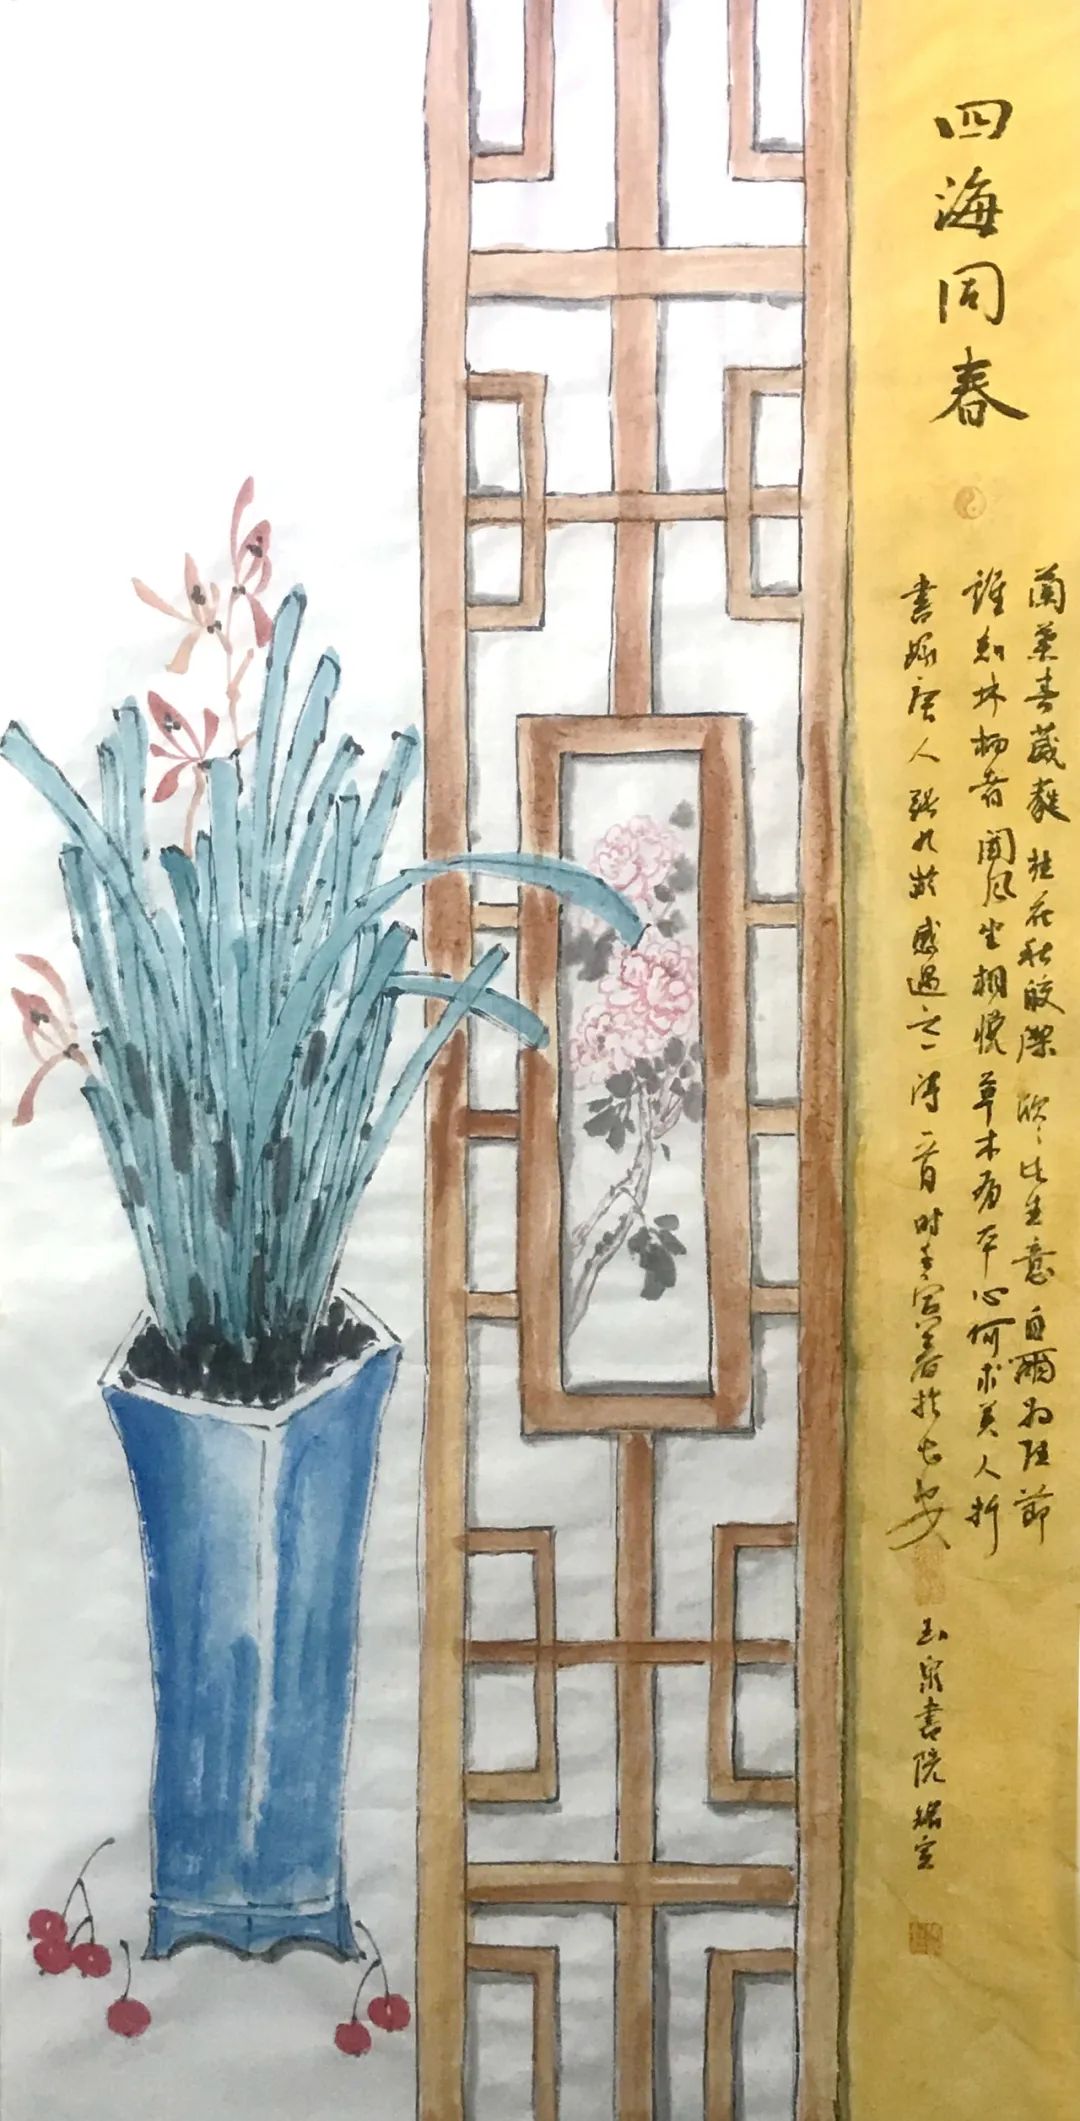 四海同春
蘭葉春葳蕤 桂花秋皎潔 欣〻此生意 自爾为佳節
誰知林栖者 闻风坐相悦 草木有本心何求美人折
書録唐人張九齡感遇之一詩一首时春 於長安
玉泉書院